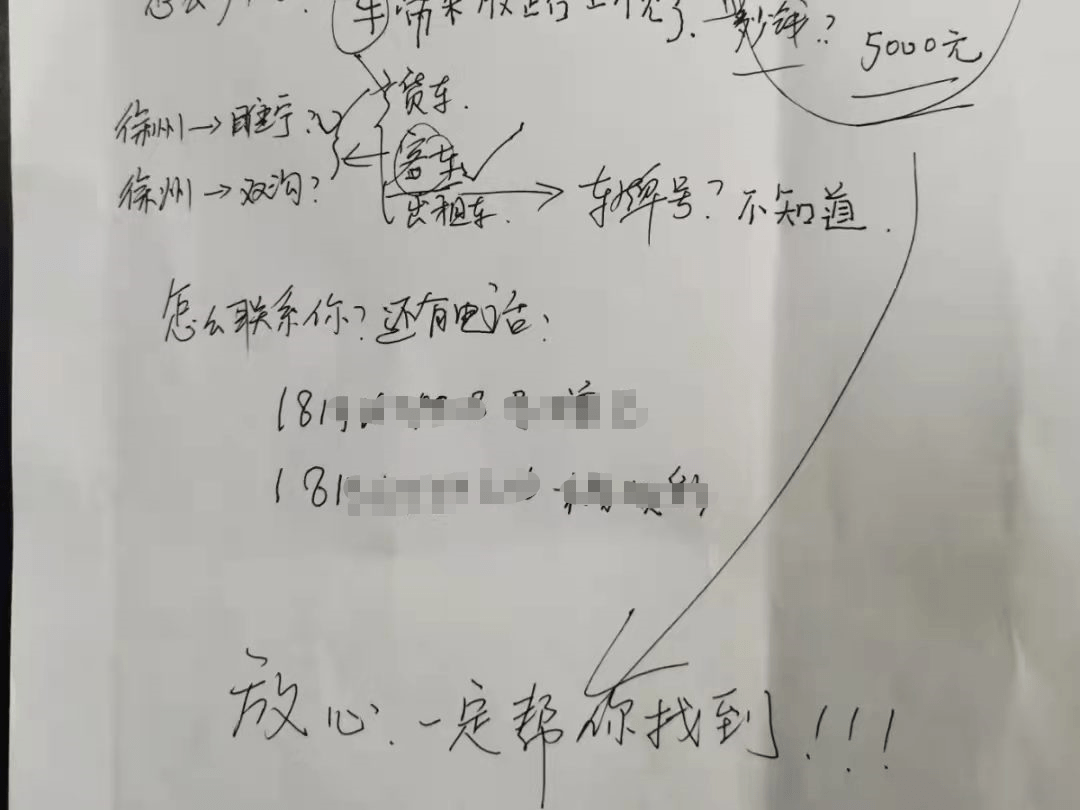 怎么
车 带来 钱?
5000元
货车.
徐州→睢宁?
客车
徐州→双沟?
出租车. 车牌号? 不知道.
怎么联系你? 还有电话:
181
181
放心. 一定帮你找到!!!